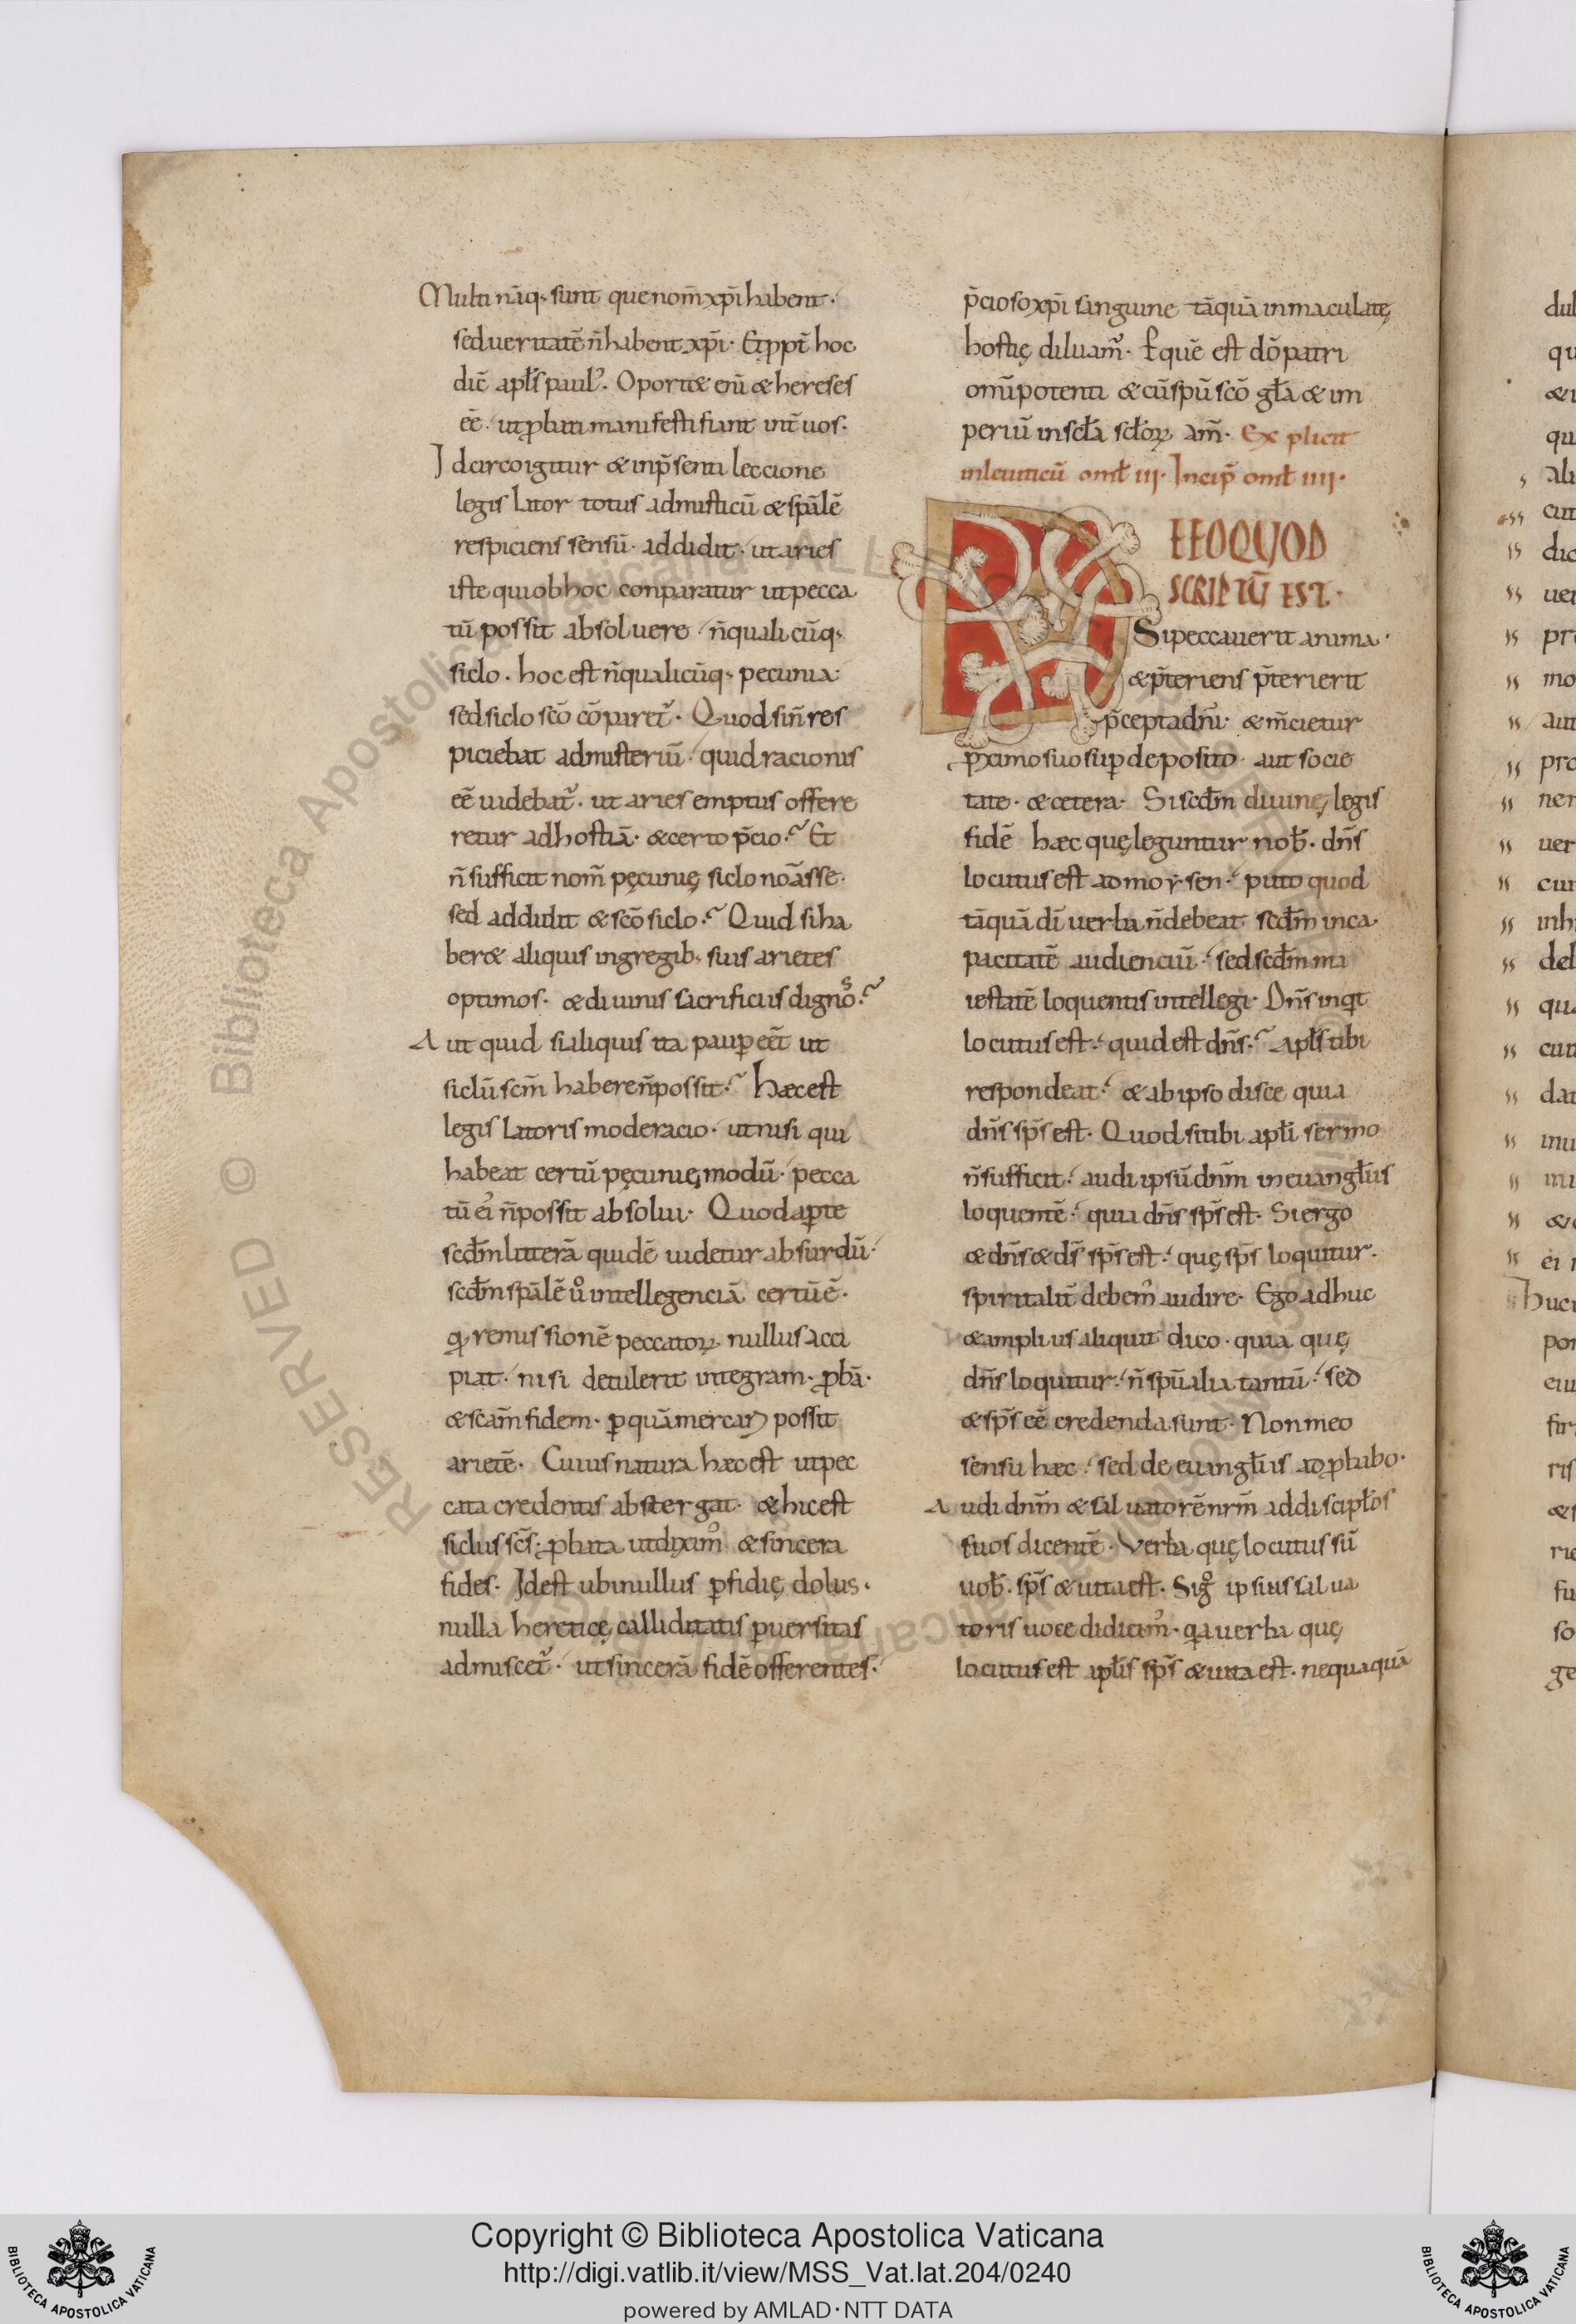 Multi nāq; sunt que nom̄ xp̄i habent·
sed ueritatē n̄ habent xp̄i· Et ꝓpt̄ hoc
dic̄ apl̄s paulꝰ· Oportet eni̅ & hereses
ēē· ut ꝓbati manifesti fiant int̄ uos·
Idcirco igitur & in p̄senti leccione
legis lator totus ad misticū & sp̄alē
respiciens sensū· addidit· ut aries
iste qui ob hoc conparatur ut pecca
tū possit absoluere n̄ qualicūq;
siclo· hoc est n̄ qualicūq; pecunia·
sed siclo sc̄o cōparet᷑· Quod si n̄ res
piciebat ad misteriū· quid racionis
eē uidebat᷑· ut aries emptus offere
retur ad hostiā· & certo p̄cio·? Et
n̄ sufficit nom̄ pęcunię siclo noāsse·
sed addidit & sc̄o siclo·? Quid si ha
beret aliquis in gregib; suis arietes
optimos· & diuinis sacrificiis dignos·?
Aut quid si aliquis ita paup̱ eēt ut
siclū sc̄m habere n̄ possit·? Hæc est
legis latoris moderacio· ut nisi qui
habeat certū pęcunię modū· pecca
tū ei n̄ possit absolui· Quod ap̱te
scd̄m litterā quidē uidetur absurdū·
scd̄m sp̄alē ů intellegenciā certū ē·
qꝭ remissionē peccatoꝝ nullus acci
piat· nisi detulerit integram· ꝓbā·
& scam̄ fidem· p̱ quā mercari possit
arietē· Cuius natura hæc est ut pec
cata credentis abstergat· & hic est
siclus sc̄s· ꝓbata ut diximꝰ & sincera
fides· Id est ubi nullus p̱fidię dolus·
nulla heretice calliditatis p̱uersitas
admiscet᷑· ut sincerā fidē offerentes·
p̄cioso xp̄i sanguine tāquā inmaculatę
hostię diluam᷑· P̱ quē est dō patri
omīpotenti & cū sp̄u sc̄o gl̄a & im
periū in scl̄a scl̄oꝝ am̄· Explicit
in leuiticū omł III· Incip̄ omł IIII·
EEO QUOD
SCRIPTŪ EST·
Si peccauerit anima·
& p̄teriens p̄terierit
p̄cepta dn̄i· & m̄cietur
ꝓximo suo sup̱ deposito· aut socie
tate· & cetera· Si scd̄m diuinę legis
fidē hæc quę leguntur nob̄· dn̄s
locutus est ad moẏsen· puto quod
tāquā dī uerba n̄ debeat scd̄m inca
pacitatē audienciū· sed scd̄m ma
iestatē loquentis intellegi· Dn̄s inqꝭt
locutus est· quid est dn̄s·? Apl̄s tibi
respondeat· & ab ipso disce quia
dn̄s sp̄s est· Quod si tibi apl̄i sermo
n̄ sufficit· audi ipsū dn̄m in euangl̄iis
loquentē· quia dn̄s sp̄s est· Si ergo
& dn̄s & dī sp̄s est· quę sp̄s loquitur·
spiritalit̄ debemꝰ audire· Ego adhuc
& amplius aliquit dico· quia quę
dn̄s loquitur· n̄ sp̄ualia tantū· sed
& sp̄s eē credenda sunt· Non meo
sensu hæc· sed de euangl̄iis adꝓbabo·
Audi dn̄m & saluatorē nr̄m ad discipl̄os
suos dicentē· Verba quę locutus sū
uob̄· sp̄s & uita est· Sigͦ ipsius salua
toris uoce didicimꝰ· qꝭa uerba quę
locutus est apl̄is sp̄s & uita est· nequaquā
Copyright © Biblioteca Apostolica Vaticana
http://digi.vatlib.it/view/MSS_Vat.lat.204/0240
powered by AMLAD·NTT DATA